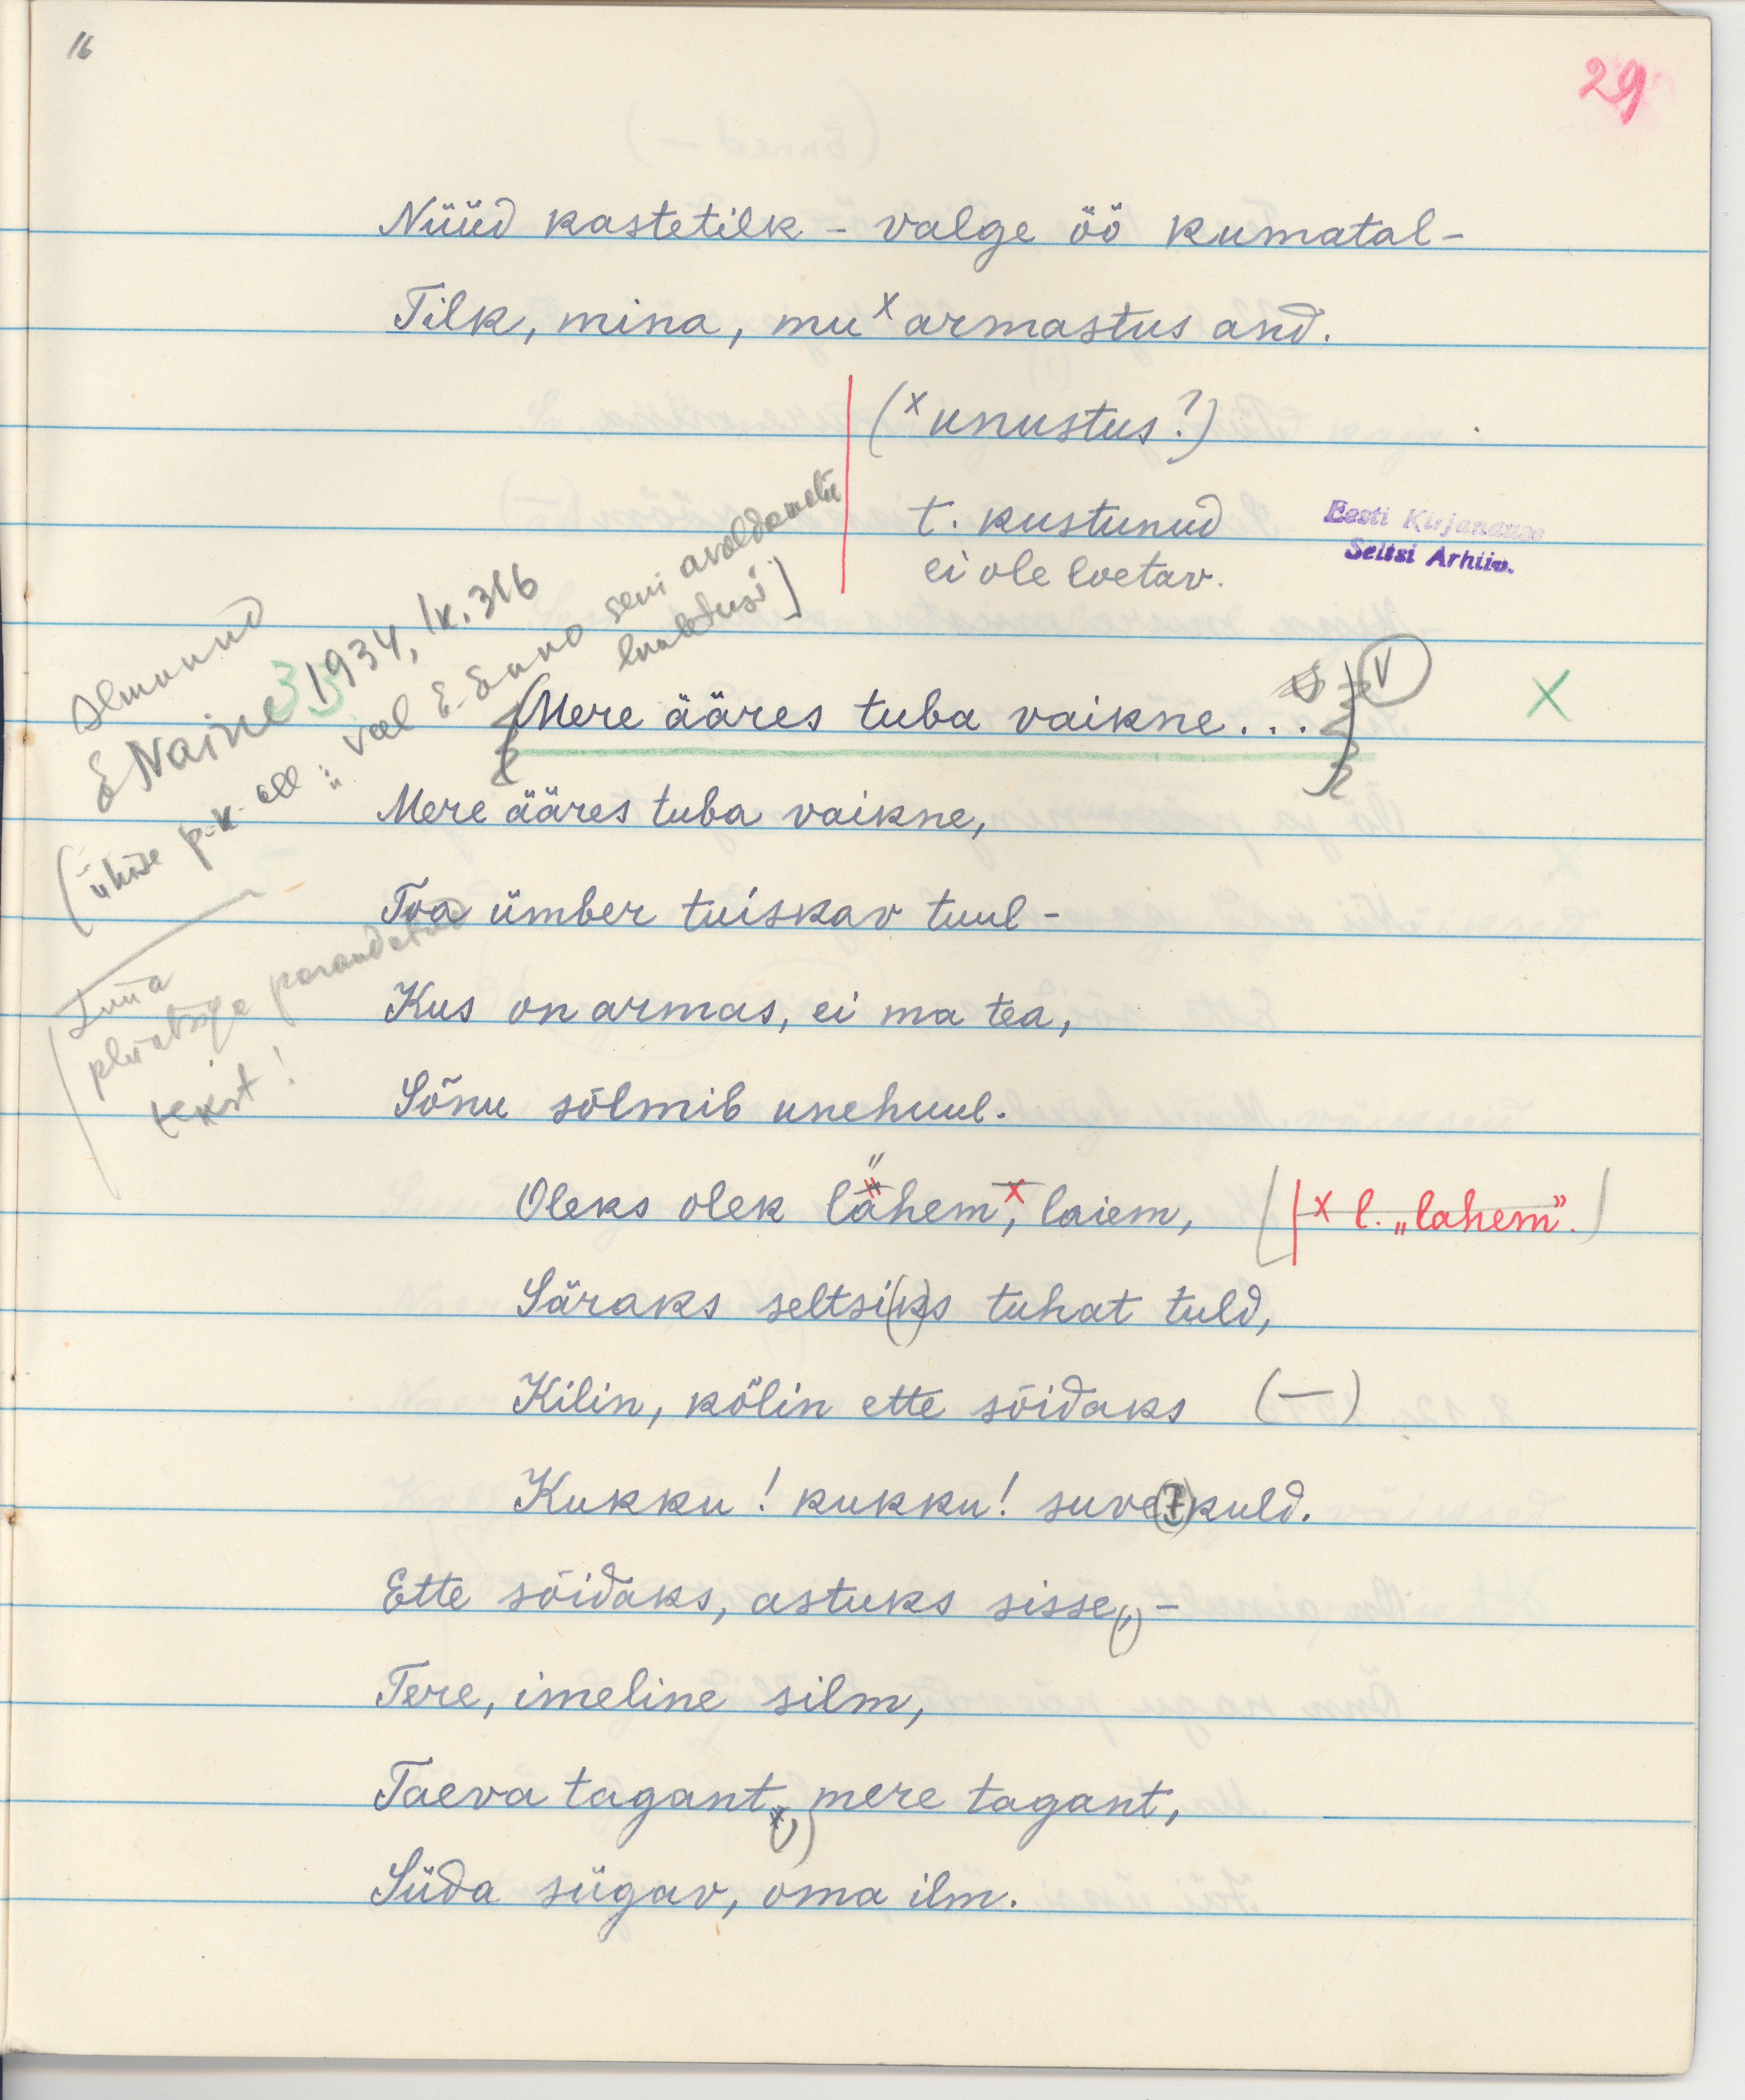 16
29
Nüüd kastetilk - valge öö kumatal-
Tilk, mina, mu x armastus and.
(x unustus?)
t. kustunud
ei ole loetav.
Eesti Kirjanduse
Seltsi Arhiiv.
Ilmunud
E Naine 1934, lk. 316
33
(ühise p-k. all: veel E. Enno seni avaldamatu
luuletusi.]
(Mere ääres tuba vaikne...) V X
Mere ääres tuba vaikne,
Toa ümber tuiskav tuul -
Kus on armas, ei ma tea,
Sõnu sõlmib unehuul.
pliiatsiga parandatud
tekst!
Oleks olek lähem, x laiem, (x l. „lahem”.)
Säraks seltsi(k)s tuhat tuld,
Kilin, kõlin ette sõidaks (—)
Kukku! kukku! suve(-)kuld.
Ette sõidaks, astuks sisse(,) -
Tere, imeline silm,
Taeva tagant(,) mere tagant,
Süda sügav, oma ilm.